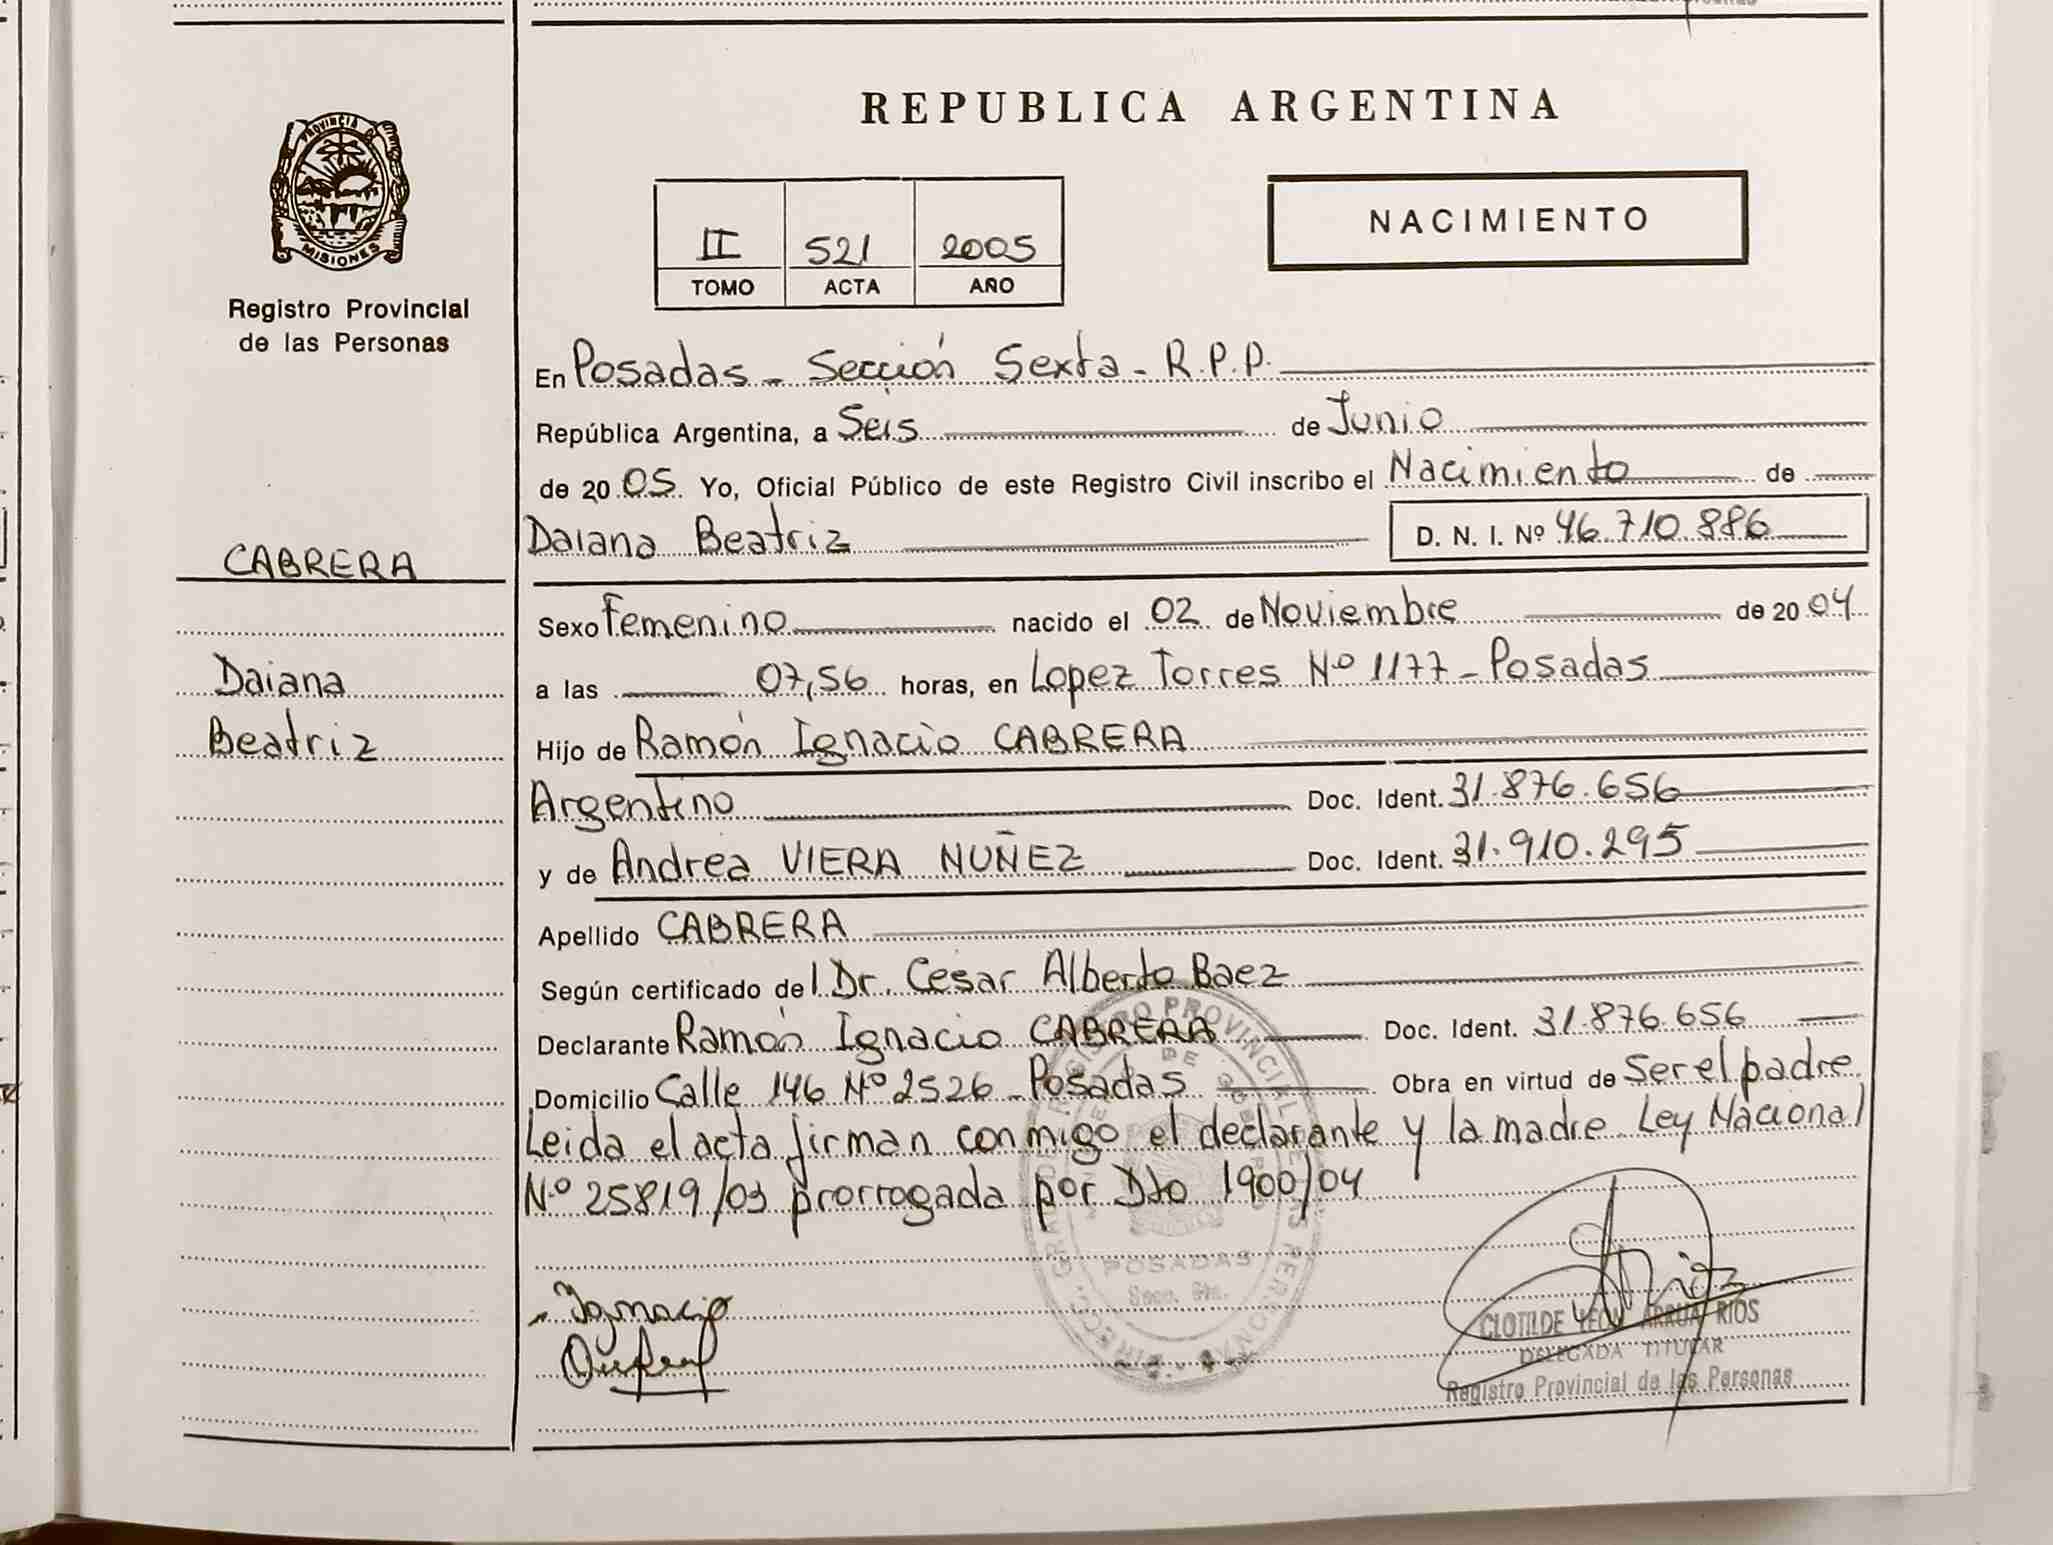 REPUBLICA ARGENTINA
PROVINCIA DE
MISIONES
Registro Provincial
de las Personas
II 521 2005
TOMO ACTA AÑO
NACIMIENTO
En Posadas - Sección Sexta - R.P.P.
República Argentina, a Seis de Junio
de 2005 Yo, Oficial Público de este Registro Civil inscribo el Nacimiento de
Daiana Beatriz D. N. I. Nº 46.710.886
CABRERA
Sexo Femenino nacido el 02 de Noviembre de 2004
Daiana
a las 07,56 horas, en Lopez Torres Nº 1177 - Posadas
Beatriz
Hijo de Ramón Ignacio CABRERA
Argentino Doc. Ident. 31.876.656
y de Andrea VIERA NUÑEZ Doc. Ident. 31.910.295
Apellido CABRERA
Según certificado del Dr. Cesar Alberto Baez
Declarante Ramón Ignacio CABRERA Doc. Ident. 31.876.656
Domicilio Calle 146 Nº 2526 - Posadas Obra en virtud de Ser el padre
Leida el acta firman conmigo el declarante y la madre Ley Nacional
Nº 25819/03 prorrogada por Dto 1900/04
REGISTRO PROVINCIAL DE LAS PERSONAS
POSADAS
Secc. 6ta.
Ignacio
CLOTILDE LEON ARRUA RIOS
DELEGADA TITULAR
Registro Provincial de las Personas